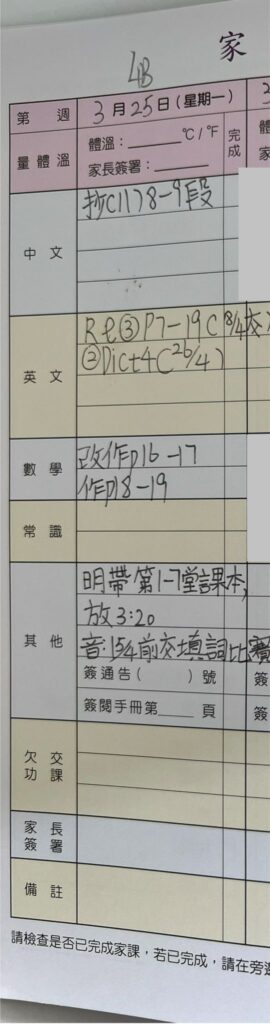 家
4B
第 週 3月25日(星期一)
量體溫 體溫:______°C/°F 完成
家長簽署:______
中文 抄C11)8-9段
英文 Re③P7-19(8/4交)
②Dict4(26/4)
數學 改作p16-17
作p18-19
常識
其他 明帶第1-7堂課本,
放3:20
音:15/4前交填詞比賽
簽通告( )號
簽閱手冊第____頁
欠交功課
家長簽署
備註
請檢查是否已完成家課,若已完成,請在旁邊